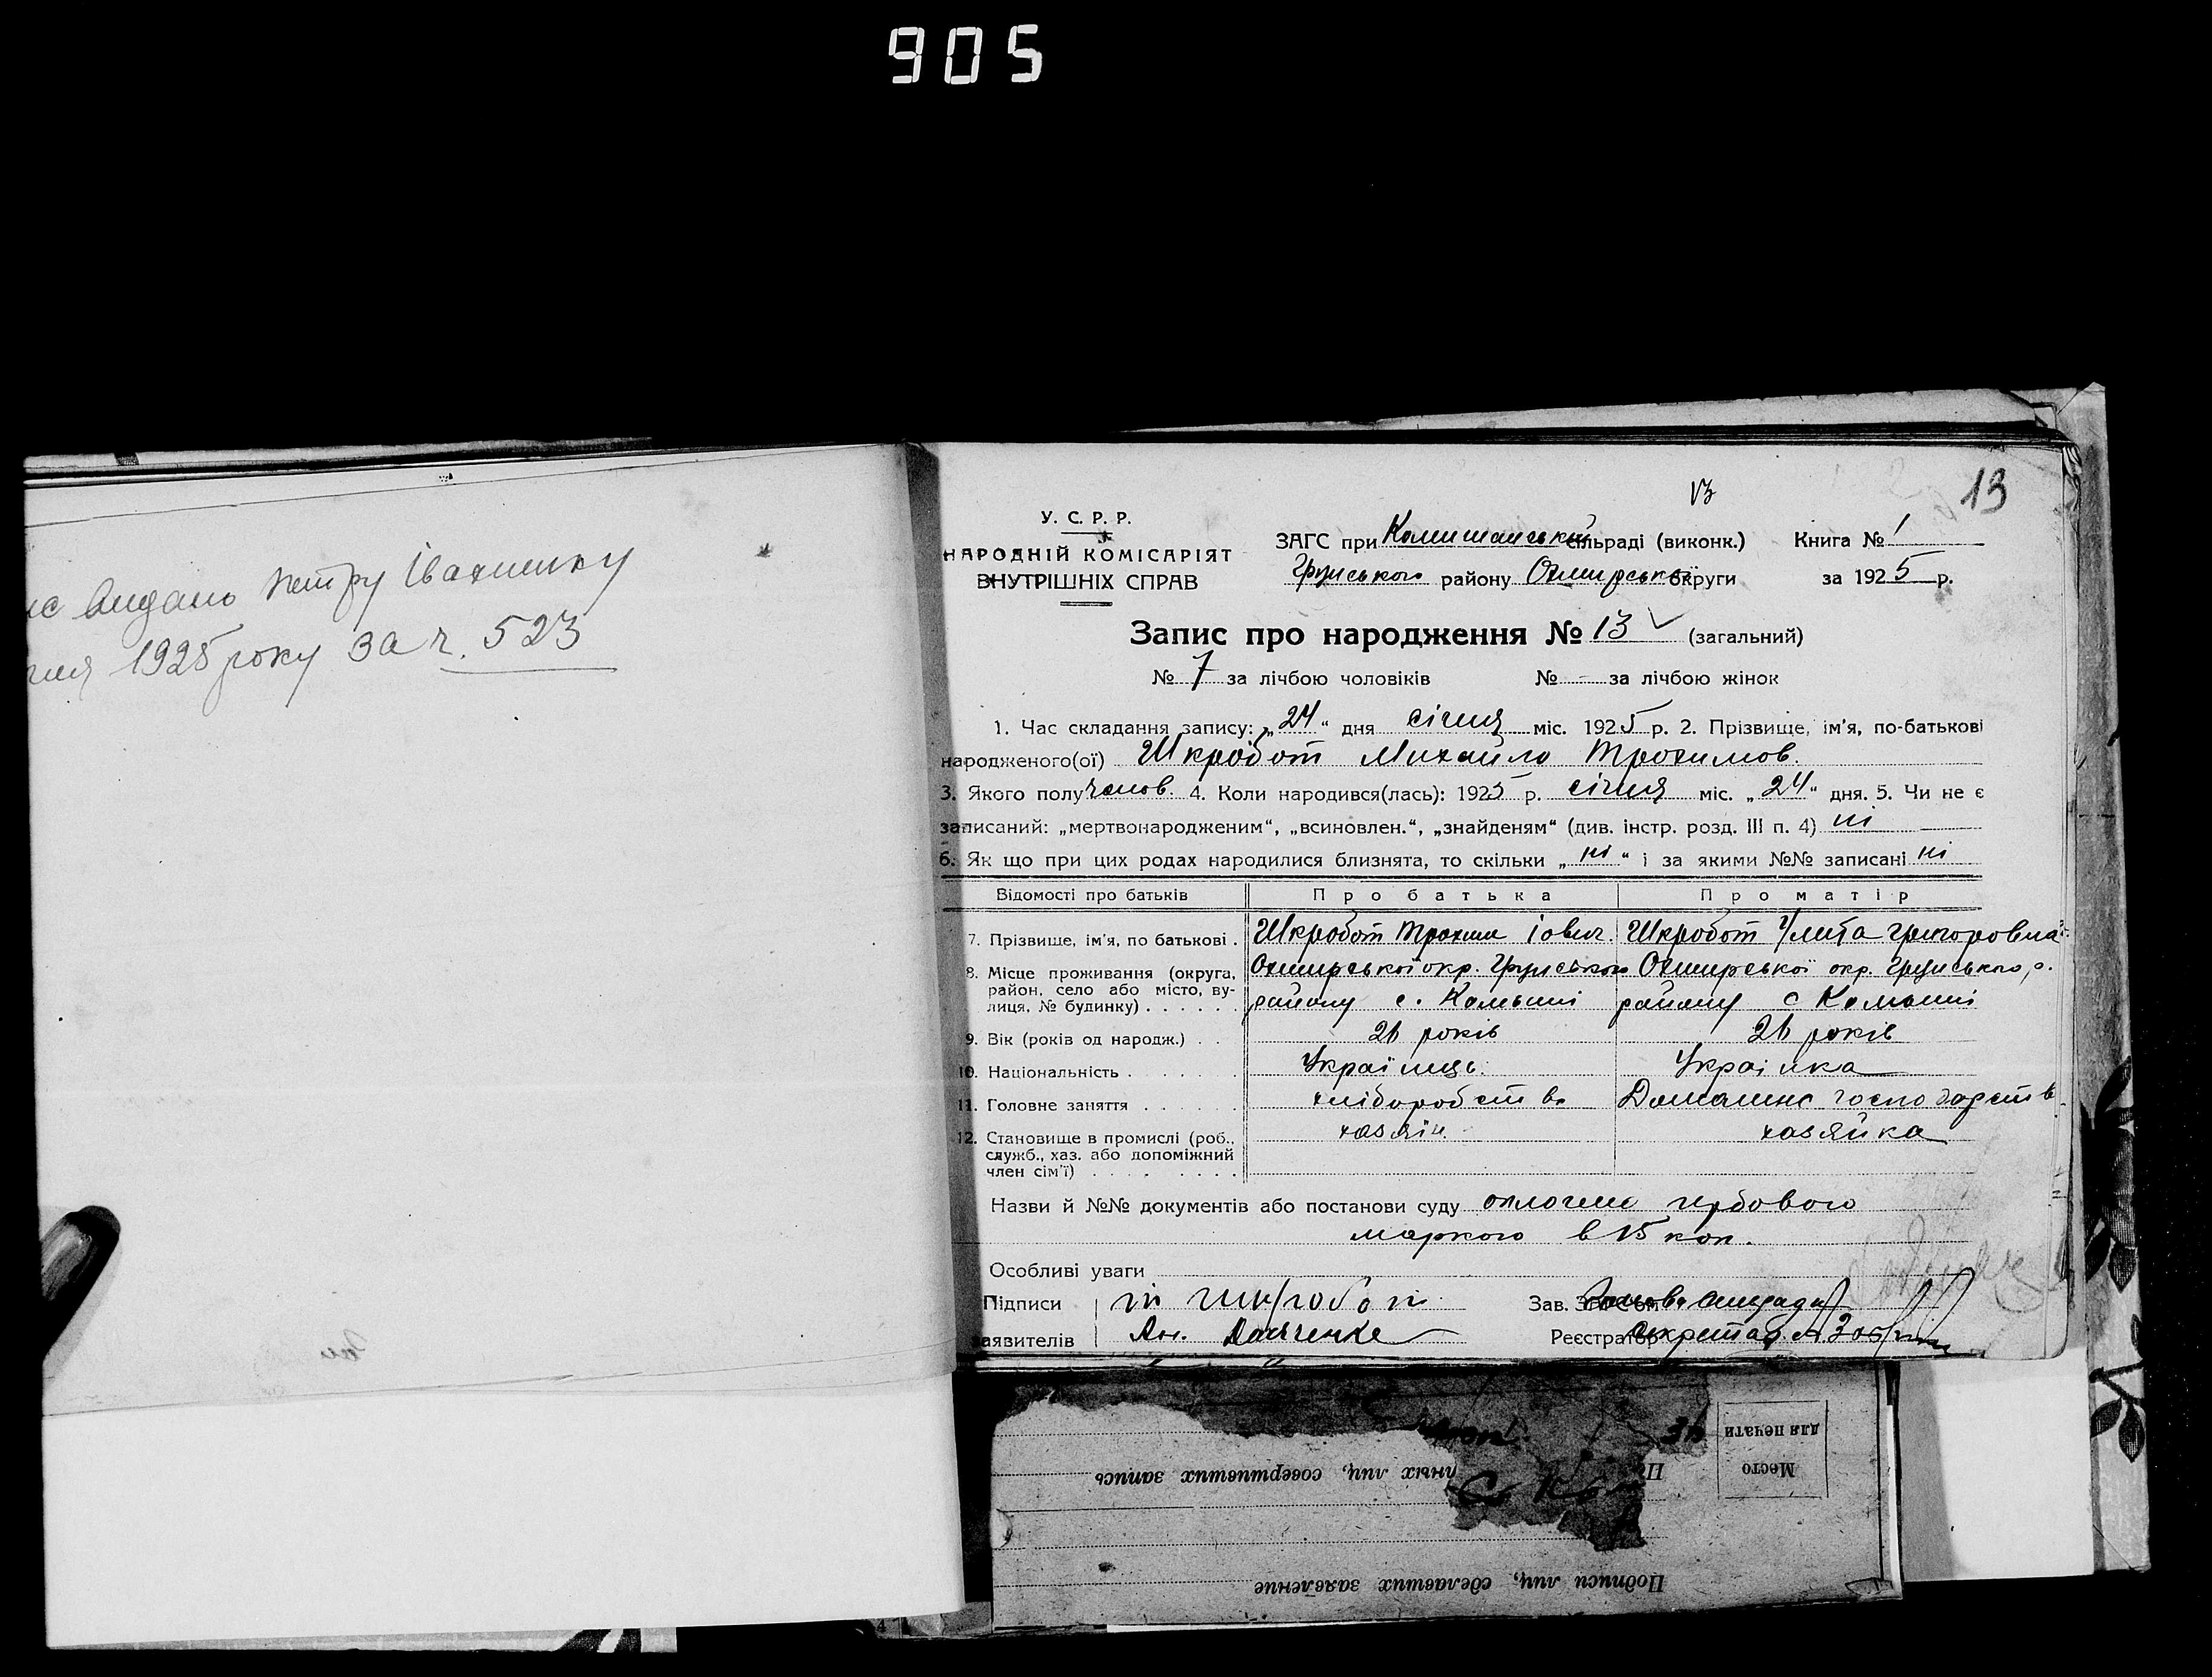 905
видано Петру Івахненку
1925 року за ч. 523
13
13
У. С. Р. Р.
НАРОДНІЙ КОМІСАРІЯТ
ВНУТРІШНІХ СПРАВ
ЗАГС при Комишанській сільраді (виконк.) Книга № 1
Грунського району Охтирської округи за 1925 р.
Запис про народження № 13 (загальний)
№ 7 за лічбою чоловіків № - за лічбою жінок
1. Час складання запису: „24“ дня січня міс. 1925 р. 2. Прізвище, ім'я, по-батькові
народженого(ої) Шкробот Михайло Трохимов.
3. Якого полу чолов. 4. Коли народився(лась): 1925 р. січня міс. „24“ дня. 5. Чи не є
записаний: „мертвонародженим“, „всиновлен.“, „знайденям“ (див. інстр. розд. III п. 4) ні
6. Як що при цих родах народилися близнята, то скільки „ні“ і за якими №№ записані ні
Відомості про батьків Про батька Про матір
7. Прізвище, ім'я, по батькові . Шкробот Трохим Іович. Шкробот Улита Григоровна
8. Місце проживання (округа, район, село або місто, вулиця, № будинку) . . . . . . Охтирської окр. Грунського Охтирської окр. Грунського р.
району с. Комыші району с Комыші
9. Вік (років од народж.) . . 26 років 26 років
10. Національність . . . . . Українць. Українка
11. Головне заняття . . . . . . хліборобство Домашнє господарств
12. Становище в промислі (роб., служб., хаз. або допоміжний член сім'ї) . . . . . . . . хазяін. хазяйка
Назви й №№ документів або постанови суду оплочено гербовою
маркою в 15 коп.
Особливі уваги
Підписи Т Шкробот Зав. ЗАГСом Голова сільради
заявителів Реєстратор Секретар
Место
для печати
лиц, совершивших запись
Подписи лиц, сделавших заявление